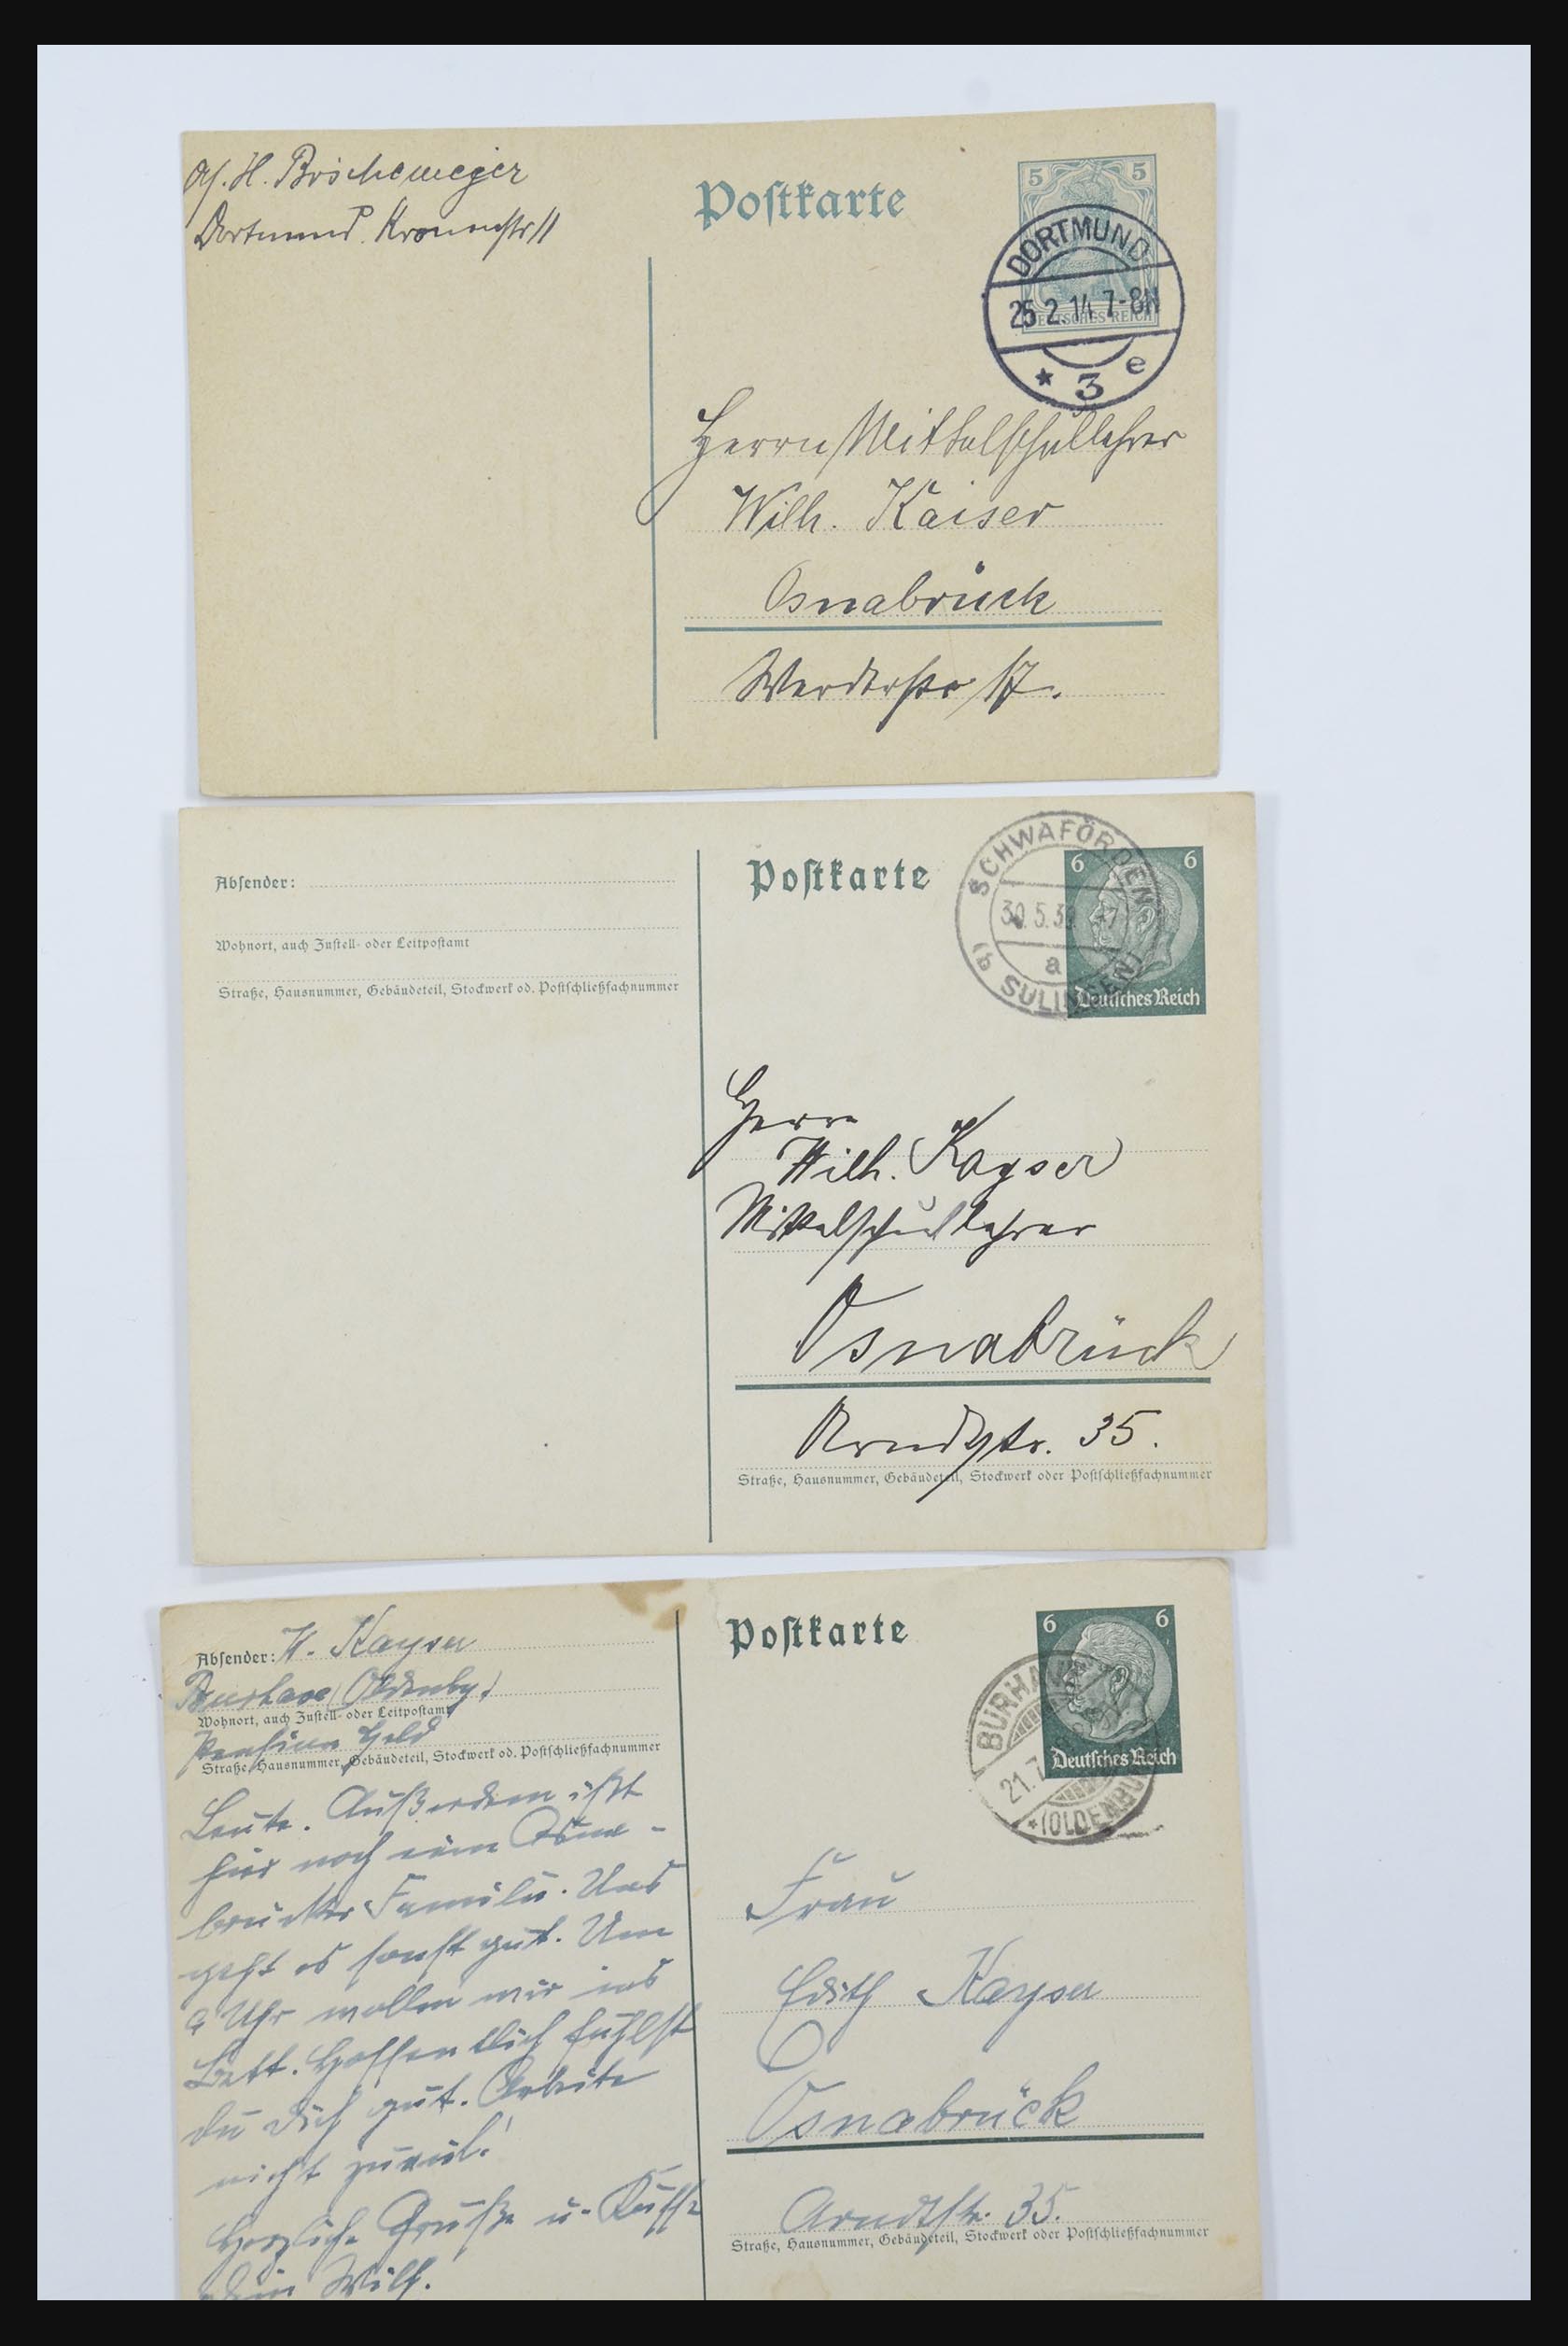 H. Boschemeyer
Dortmund. Kronenstr 11
Postkarte
5 5
DEUTSCHES REICH
DORTMUND
25.2.14 7-8N
* 3 e
Herrn Mittelschullehrer
Wilh. Kaiser
Osnabrück
Werderstr 17.
Absender:
Wohnort, auch Zustell- oder Leitpostamt
Straße, Hausnummer, Gebäudeteil, Stockwerk od. Postschließfachnummer
Postkarte
6 6
Deutsches Reich
SCHWAFÖRDEN
30.5.3
a
(b SULINGEN)
Herrn
Wilh. Kayser
Mittelschullehrer
Osnabrück
Arndtstr. 35.
Straße, Hausnummer, Gebäudeteil, Stockwerk oder Postschließfachnummer
Absender: W. Kayser
Burhave (Oldenbg.)
Wohnort, auch Zustell- oder Leitpostamt
Pension
Straße, Hausnummer, Gebäudeteil, Stockwerk od. Postschließfachnummer
Leute. Außerdem ißt
hier noch eine Osna-
brücker Familie. Uns
geht es sonst gut. Um
9 Uhr wollen wir ins
Bett. Hoffentlich fühlst
du dich gut. Arbeite
nicht zuviel!
Herzliche Grüße u. Küsse
Dein Wilh.
Postkarte
6 6
Deutsches Reich
BURHA
21.7
*(OLDENBU
Frau
Edith Kayser
Osnabrück
Arndtstr. 35.
Straße, Hausnummer, Gebäudeteil, Stockwerk oder Postschließfachnummer